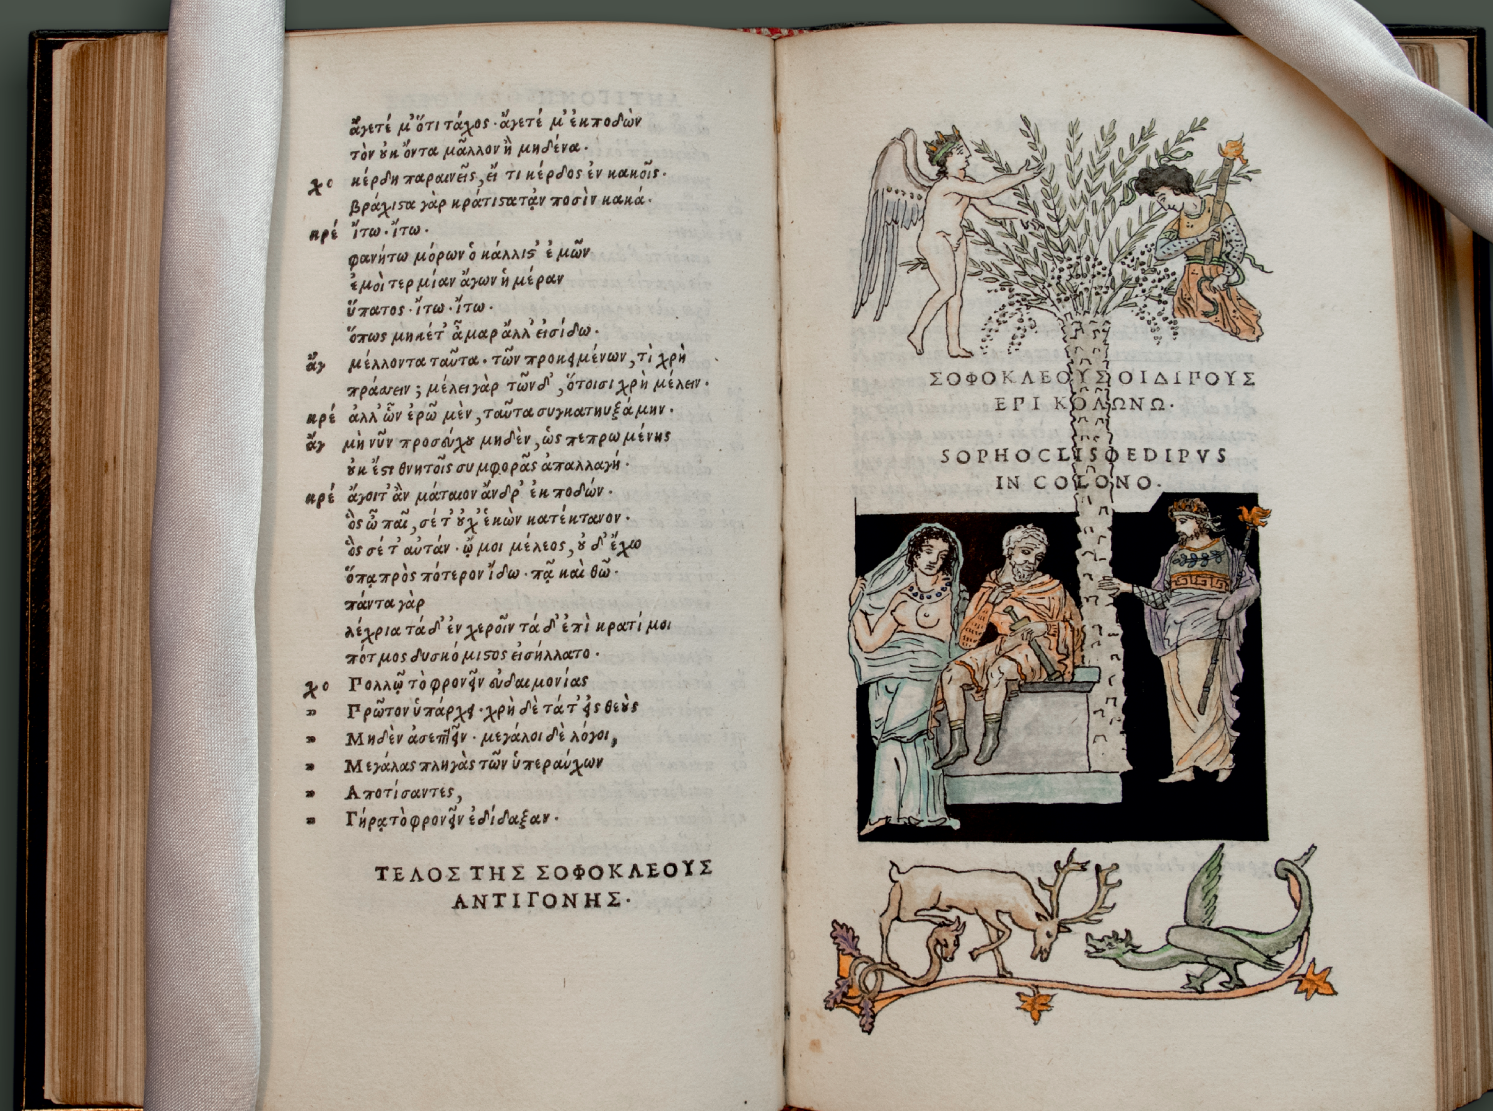 ἄγετέ μ' ὅτι τάχος· ἄγετέ μ' ἐκποδὼν
τὸν ȣ̓κ ὄντα μᾶλλον ἢ μηδένα·
χο κέρδη παραινεῖς, εἴ τι κέρδος ἐν κακοῖς·
βράχιϛα γὰρ κράτιϛα τᾀν ποσὶν κακά·
κρέ ἴτω· ἴτω·
φανήτω μόρων ὁ κάλλιϛ' ἐμῶν
ἐμοὶ τερμίαν ἄγων ἡμέραν
ὕπατος· ἴτω· ἴτω·
ὅπως μηκέτ' ἆμαρ ἄλλ' εἰσίδω·
ἄγ μέλλοντα ταῦτα· τῶν προκειμένων, τὶ χρὴ
πράσσειν; μέλει γὰρ τῶνδ', ὅτοισι χρὴ μέλειν·
κρέ ἀλλ' ὧν ἐρῶ μὲν, ταῦτα συγκατηυξάμην·
ἄγ μὴ νῦν προσεύχȣ μηδὲν, ὡς πεπρωμένης
ȣ̓κ ἔϛι θνητοῖς συμφορᾶς ἀπαλλαγή·
κρέ ἄγοιτ' ἂν μάταιον ἄνδρ' ἐκποδών·
ὃς ὦ παῖ, σέ τ' ȣ̓χ' ἑκὼν κατέκτανον·
ὃς σέ τ' αὐτάν· ᾤμοι μέλεος, ȣ̓δ' ἔχω
ὅπᾳ πρὸς πότερον ἴδω· πᾷ καὶ θῶ·
πάντα γὰρ
λέχρια τάδ' ἐν χεροῖν τάδ' ἐπὶ κρατί μοι
πότμος δυσκόμιϛος εἰσήλλατο·
χο Πολλῷ τὸ φρονεῖν εὐδαιμονίας
" Πρῶτον ὑπάρχει· χρὴ δὲ τά τ' εἰς θεȣ̀ς
" Μηδὲν ἀσεπτεῖν· μεγάλοι δὲ λόγοι,
" Μεγάλας πληγὰς τῶν ὑπεραύχων
" Αποτίσαντες,
" Γήρᾳ τὸ φρονεῖν ἐδίδαξαν·
ΤΕΛΟΣ ΤΗΣ ΣΟΦΟΚΛΕΟΥΣ
ΑΝΤΙΓΟΝΗΣ·
ΣΟΦΟΚΛΕΟΥΣ ΟΙΔΙΠΟΥΣ
ΕΠΙ ΚΟΛΩΝΩ·
SOPHOCLIS OEDIPVS
IN COLONO·